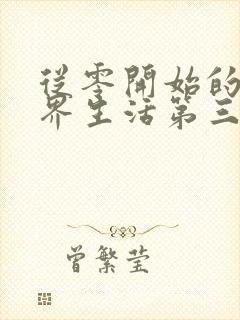 從零開始的
界生活第三
曾繁莹